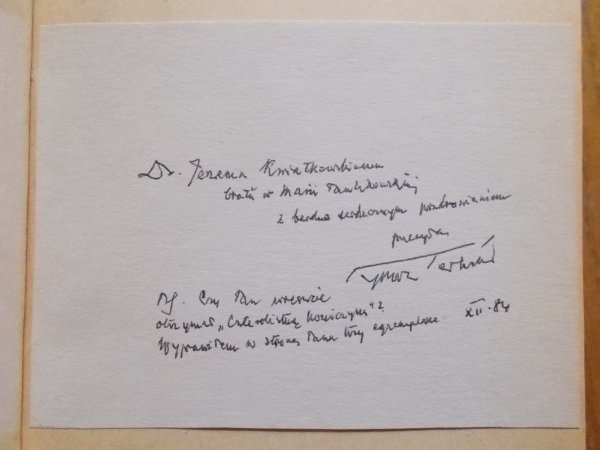 Dr. Jerzemu Kwiatkowskiemu
bratu w Marii Pawlikowskiej
z bardzo serdecznym pozdrowieniem
przesyła
Tymon Terlecki
PS. Czy Pan wreszcie
otrzymał „Czterolistną koniczynę"?
Wyprawiłem w stronę Pana trzy egzemplarze. XII.84